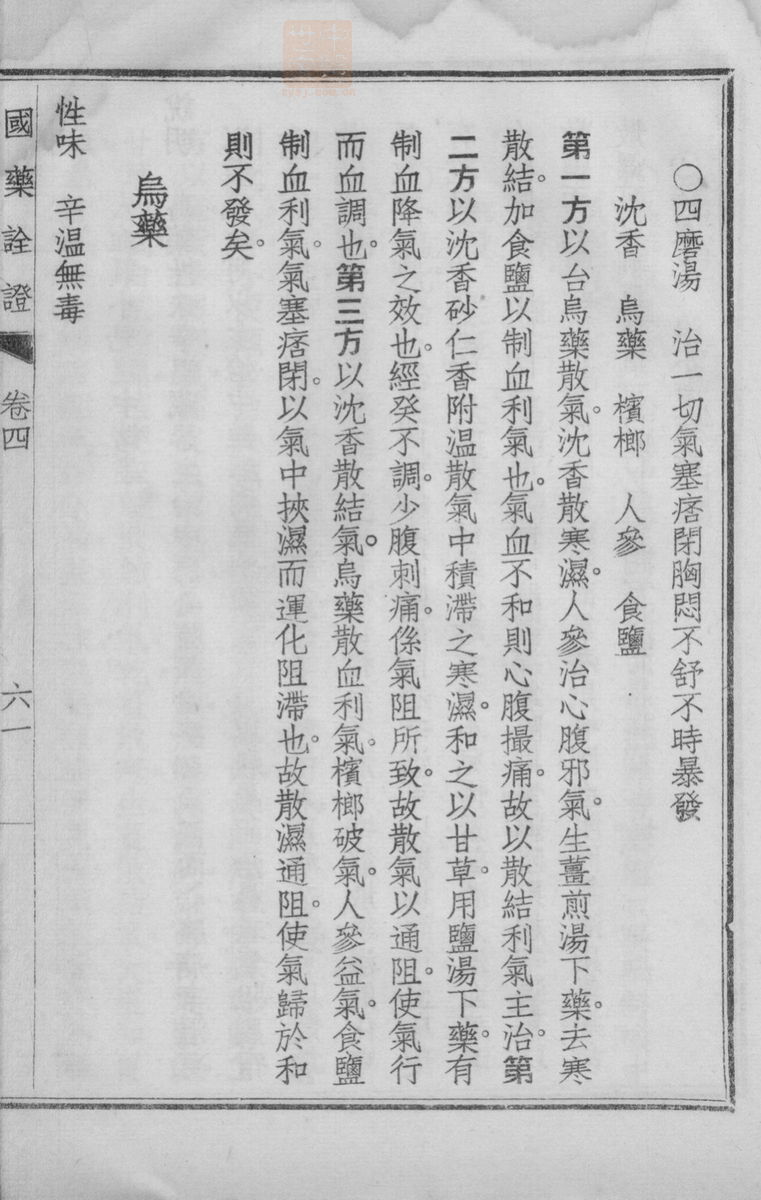 ○四磨湯　治一切氣塞痞閉胸悶不舒不時暴發
沈香　烏藥　檳榔　人參　食鹽
第一方以台烏藥散氣。沈香散寒濕。人參治心腹邪氣。生薑煎湯下藥。去寒
散結。加食鹽以制血利氣也。氣血不和則心腹撮痛。故以散結利氣主治。第
二方以沈香砂仁香附温散氣中積滯之寒濕。和之以甘草。用鹽湯下藥。有
制血降氣之效也。經癸不調。少腹刺痛。係氣阻所致。故散氣以通阻。使氣行
而血調也。第三方以沈香散結氣。烏藥散血利氣。檳榔破氣。人參益氣。食鹽
制血利氣。氣塞痞閉。以氣中挾濕而運化阻滯也。故散濕通阻。使氣歸於和
則不發矣。
烏藥
性味　辛温無毒
國藥詮證　卷四　六一